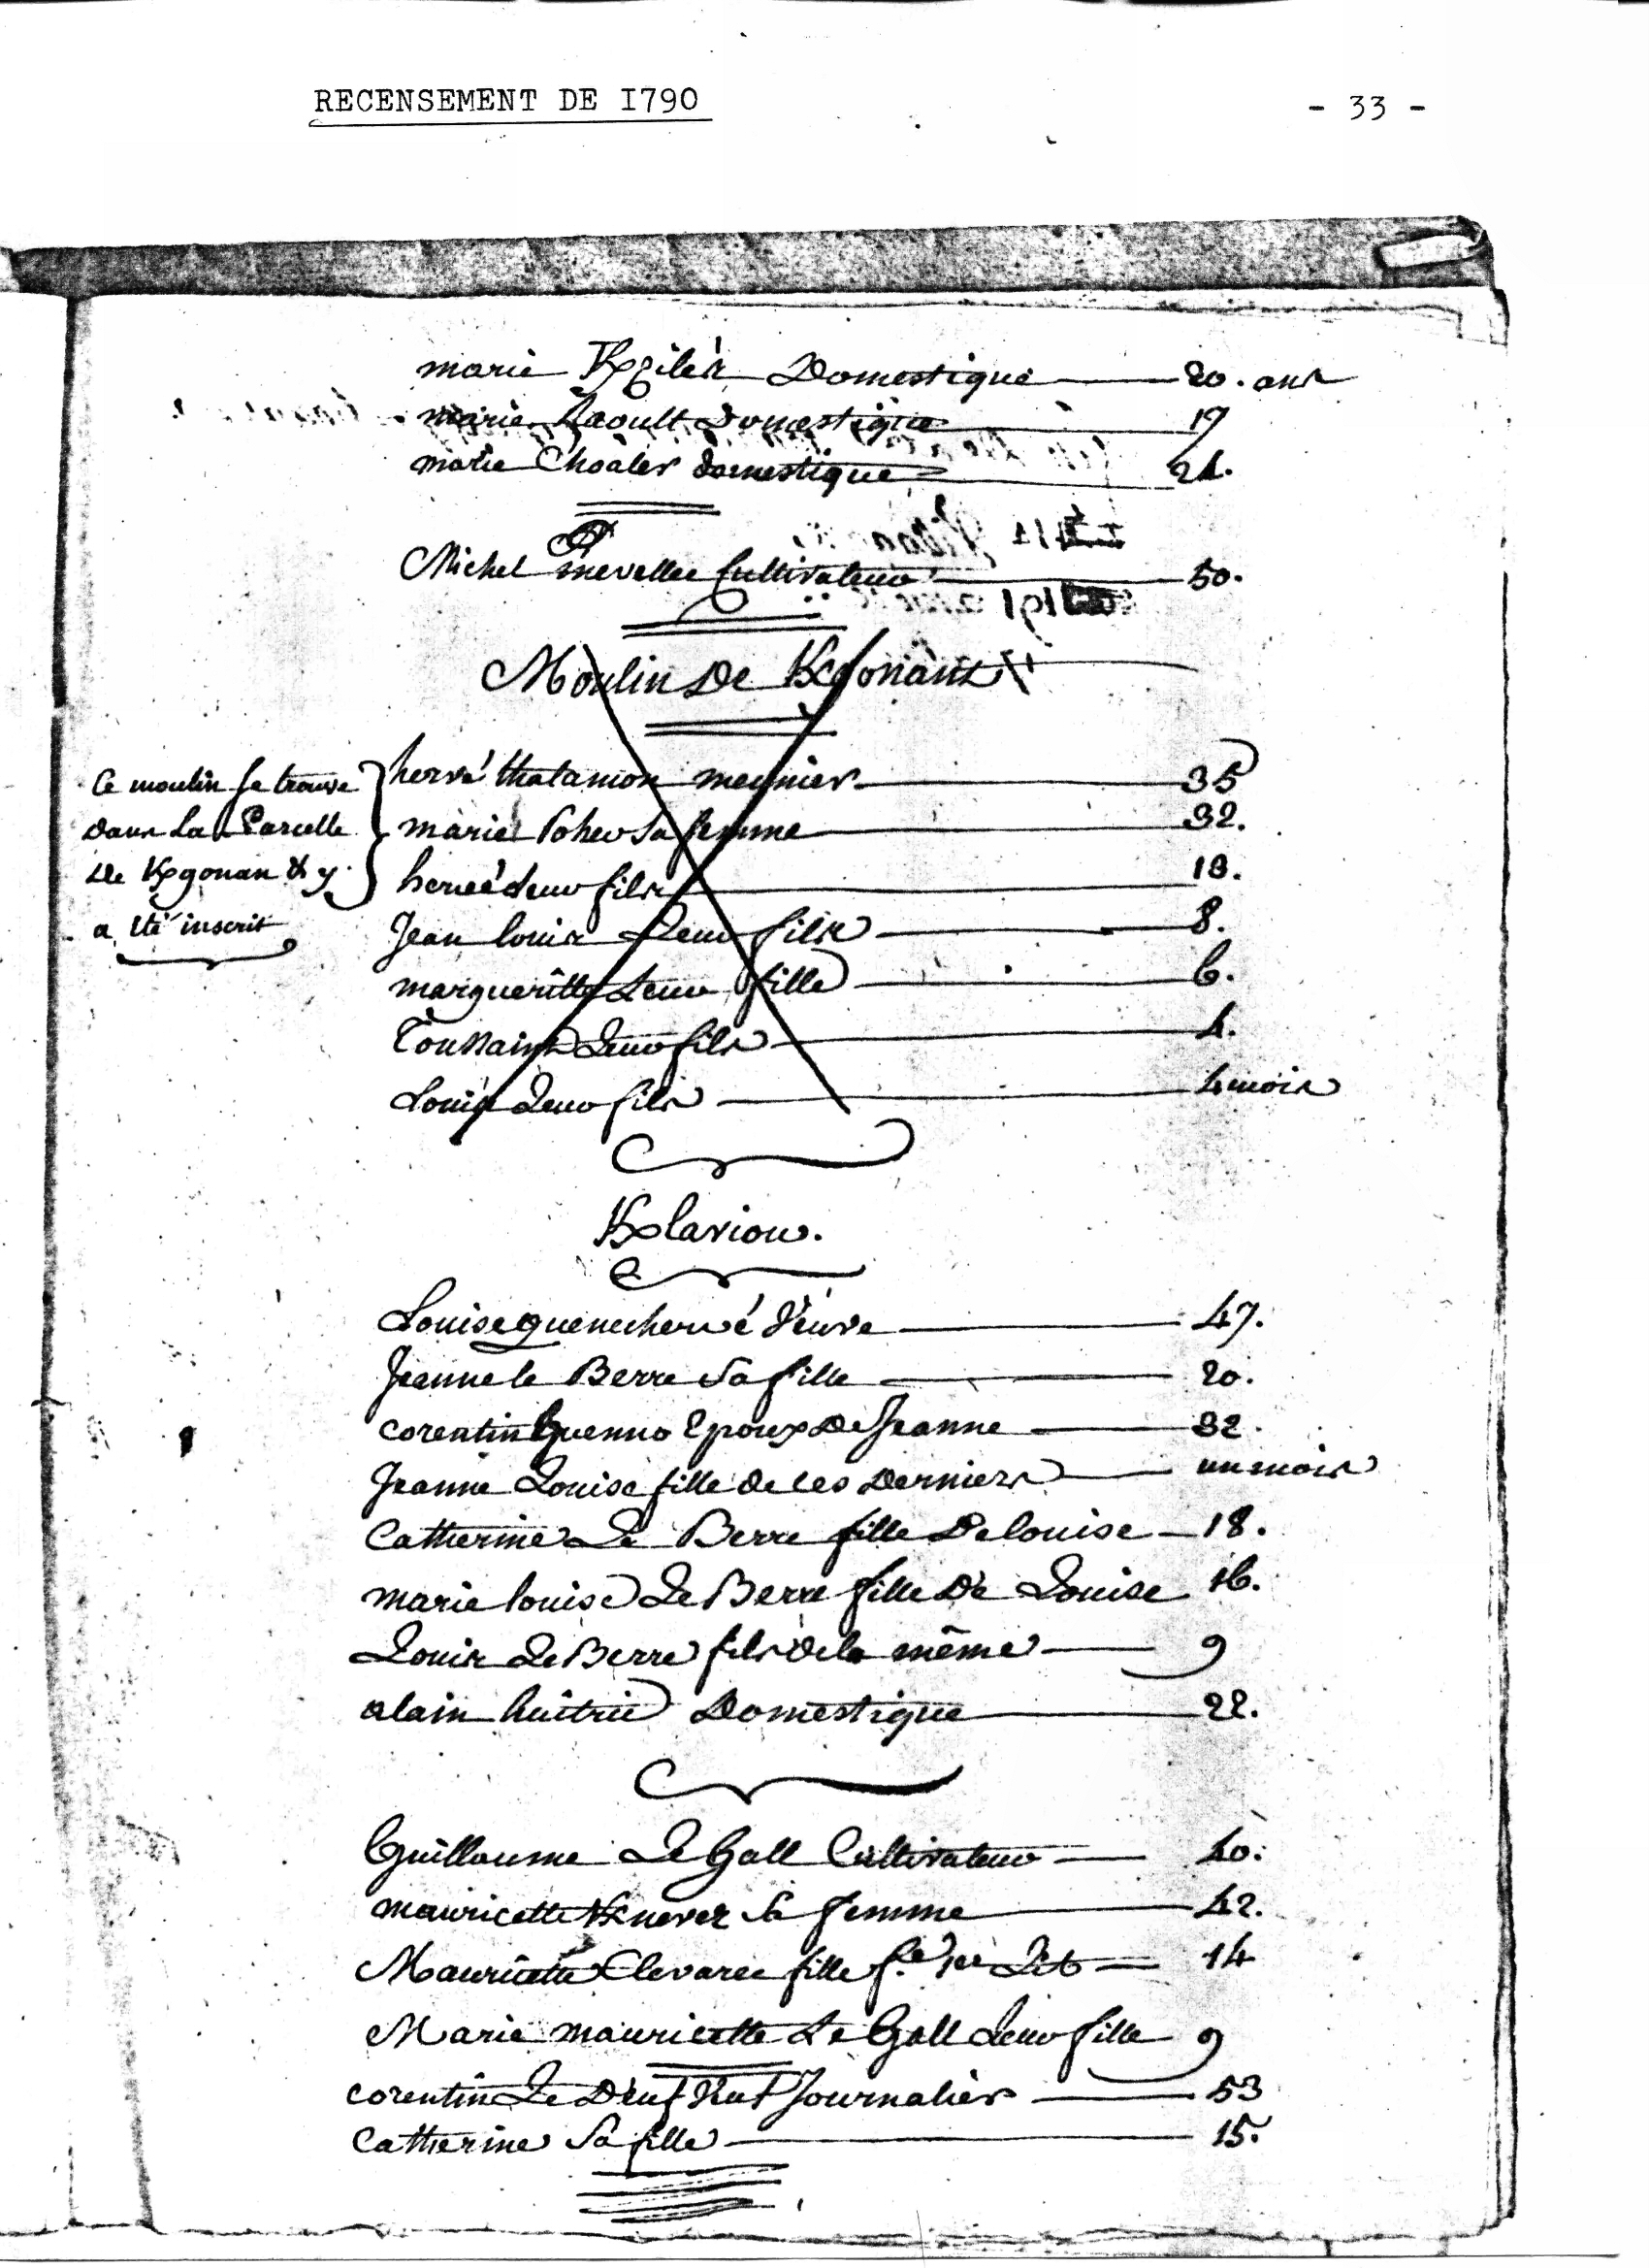 RECENSEMENT DE I790
- 33 -
marie Kgilèr Domestique 20. ans
marie Raoult Domestique 17
marie Choaler domestique 21.
Michel mevellec Cultivateur 50.
Moulin De Kgonant
Ce moulin se trouve
dans La Parcelle
de Kgonan & y
a été inscrit
hervé thalamon meunier 35
marie Poher sa femme 32.
hervé leur fils 18.
Jean louis Leur fils 8.
margueritte Leur fille 6.
Toussaint Leur fils 4.
Louis Leur fils 4 mois
Klariou.
Louise quenecherve Veuve 47.
Jeanne le Berre Sa fille 20.
corentin Guenno Epoux De Jeanne 32.
Jeanne Louise fille de ces Derniers un mois
Catherine Le Berre fille De louise 18.
marie louise Le Berre fille De Louise 16.
Louis Le Berre fils de la même 9
alain huitric Domestique 22.
Guillaume Le Gall Cultivateur 40.
mauricette Knever Sa femme 42.
Mauricette Clevarec fille 1er Lit 14
Marie mauricette Le Gall Leur fille 9
corentin Le Deuf Veuf Journalier 53
Catherine Sa fille 15.